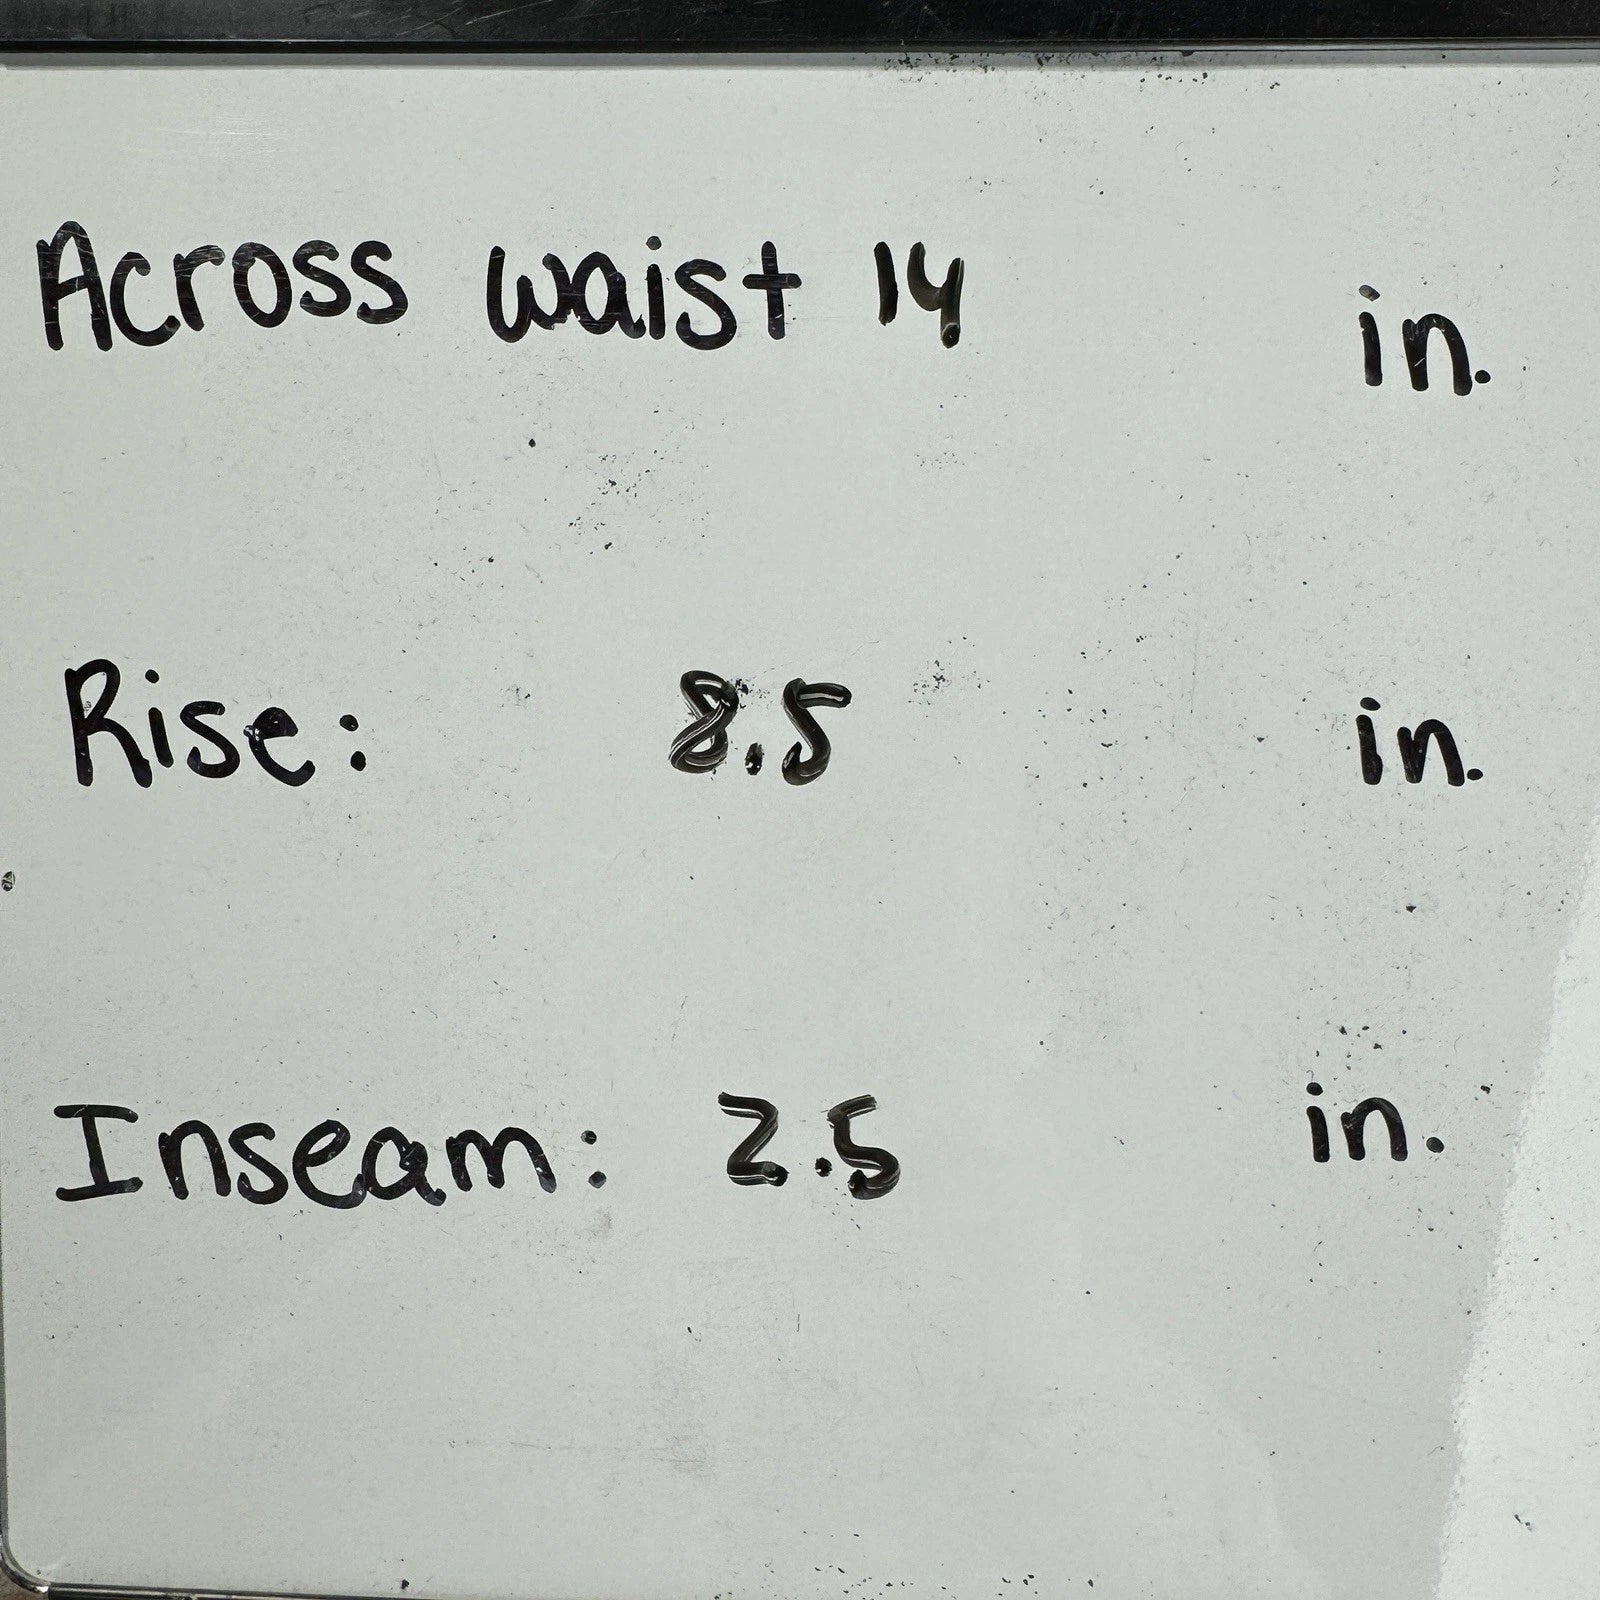 Across waist 14 in.
Rise: 8.5 in.
Inseam: 2.5 in.